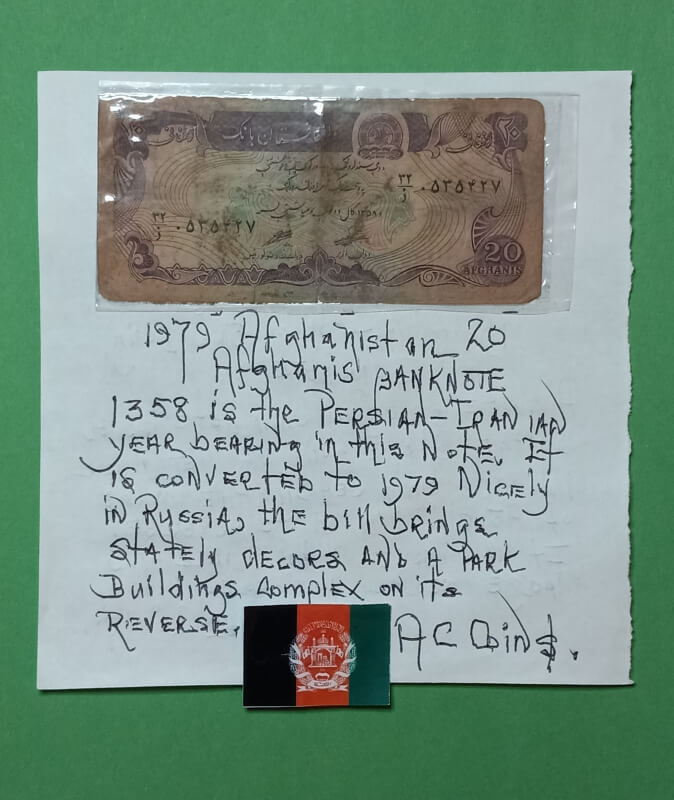 ۲۰ افغانستان بانک ۲۰
۳۲/ز ۰۵۳۵۴۲۷
۳۲/ز ۰۵۳۵۴۲۷
20
AFGHANIS
1979 Afghanistan 20
Afghanis BANKNOTE
1358 is the PERSIAN-IRANIAN
YEAR BEARING in this NOTE. It
is CONVERTED to 1979 Nicely
in Ryssia, the bill brings
stately decors AND A PARK
Buildings Complex on its
REVERSE.
AC Coin$.